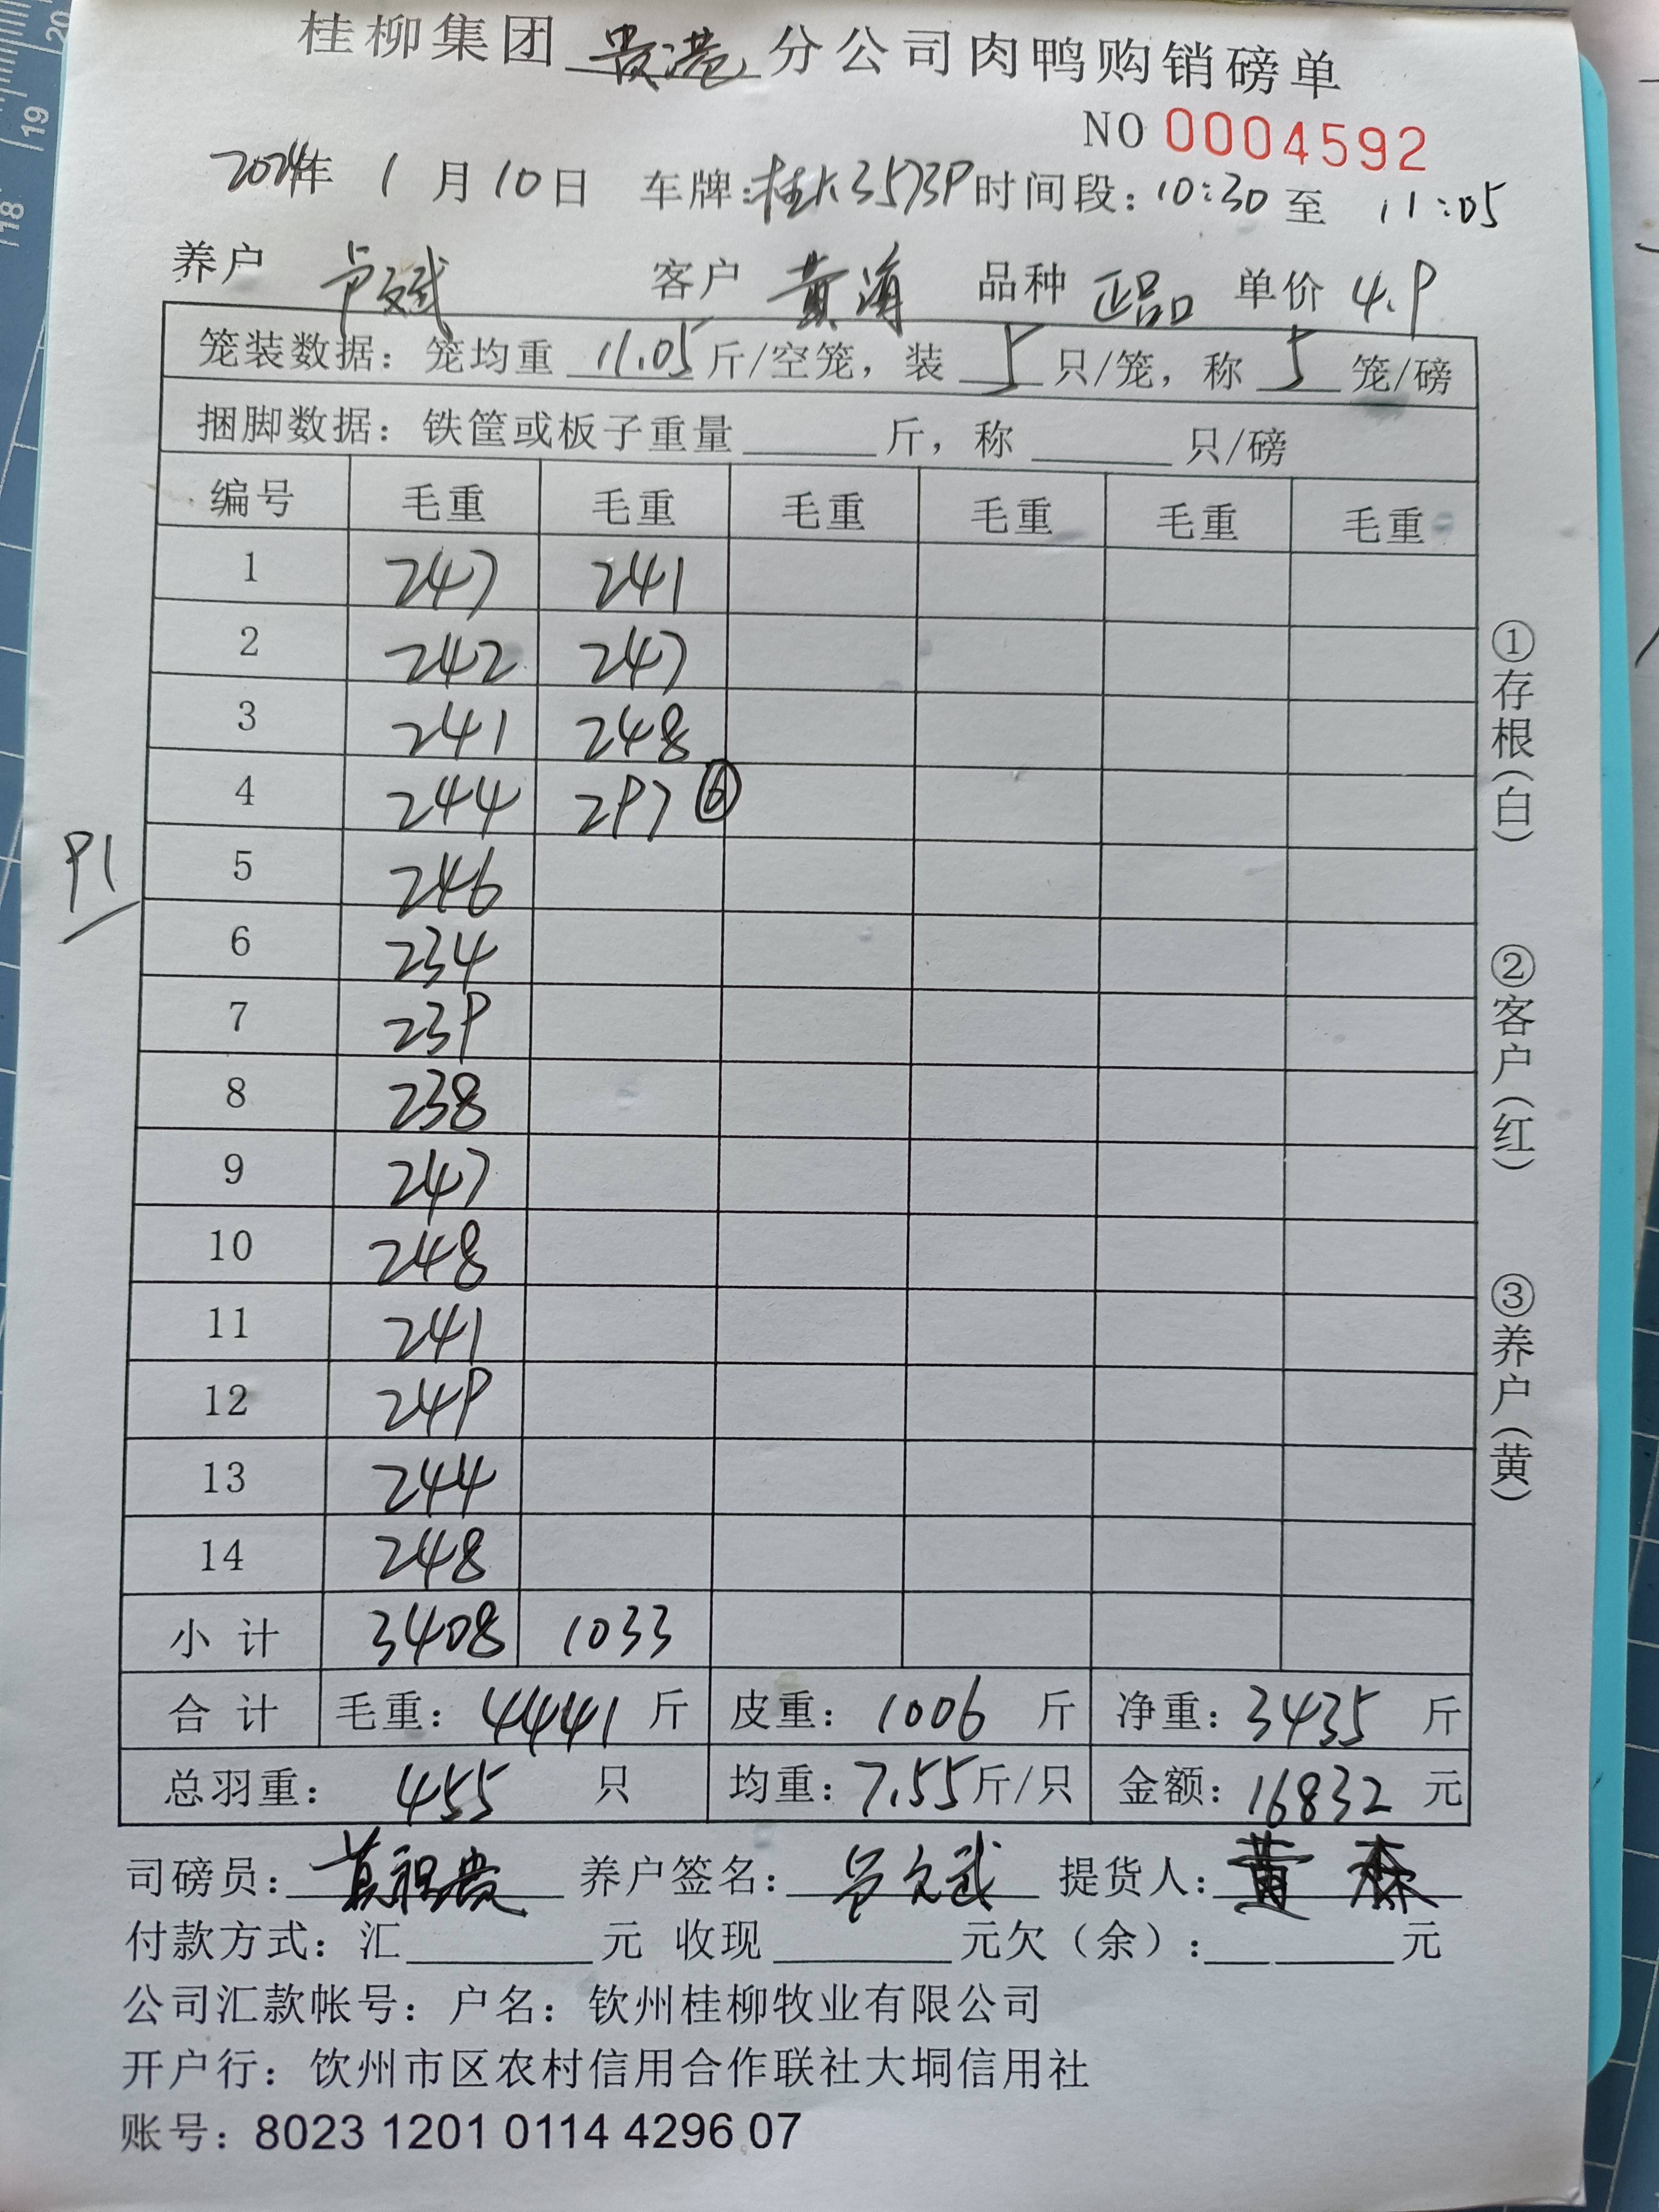 桂柳集团 贵港 分公司肉鸭购销磅单
NO 0004592
2024年 1月10日 车牌:桂K3573P 时间段: 10:30 至 11:05
养户 卢文武 客户 黄海 品种 正品 单价 4.9
笼装数据: 笼均重 11.05 斤/空笼, 装 5 只/笼, 称 5 笼/磅
捆脚数据: 铁筐或板子重量 斤, 称 只/磅
编号 毛重 毛重 毛重 毛重 毛重 毛重
1 247 241
2 242 247
3 241 248
4 244 297 ⑥
5 246
91
6 234
7 239
8 238
9 247
10 248
11 241
12 249
13 244
14 248
小计 3408 1033
合计 毛重: 4441 斤 皮重: 1006 斤 净重: 3435 斤
总羽重: 455 只 均重: 7.55 斤/只 金额: 16832 元
司磅员: 养户签名: 提货人: 黄
付款方式: 汇 元 收现 元欠(余): 元
公司汇款帐号: 户名: 钦州桂柳牧业有限公司
开户行: 钦州市区农村信用合作联社大垌信用社
账号: 8023 1201 0114 4296 07
①存根(白)
②客户(红)
③养户(黄)
20
19
18